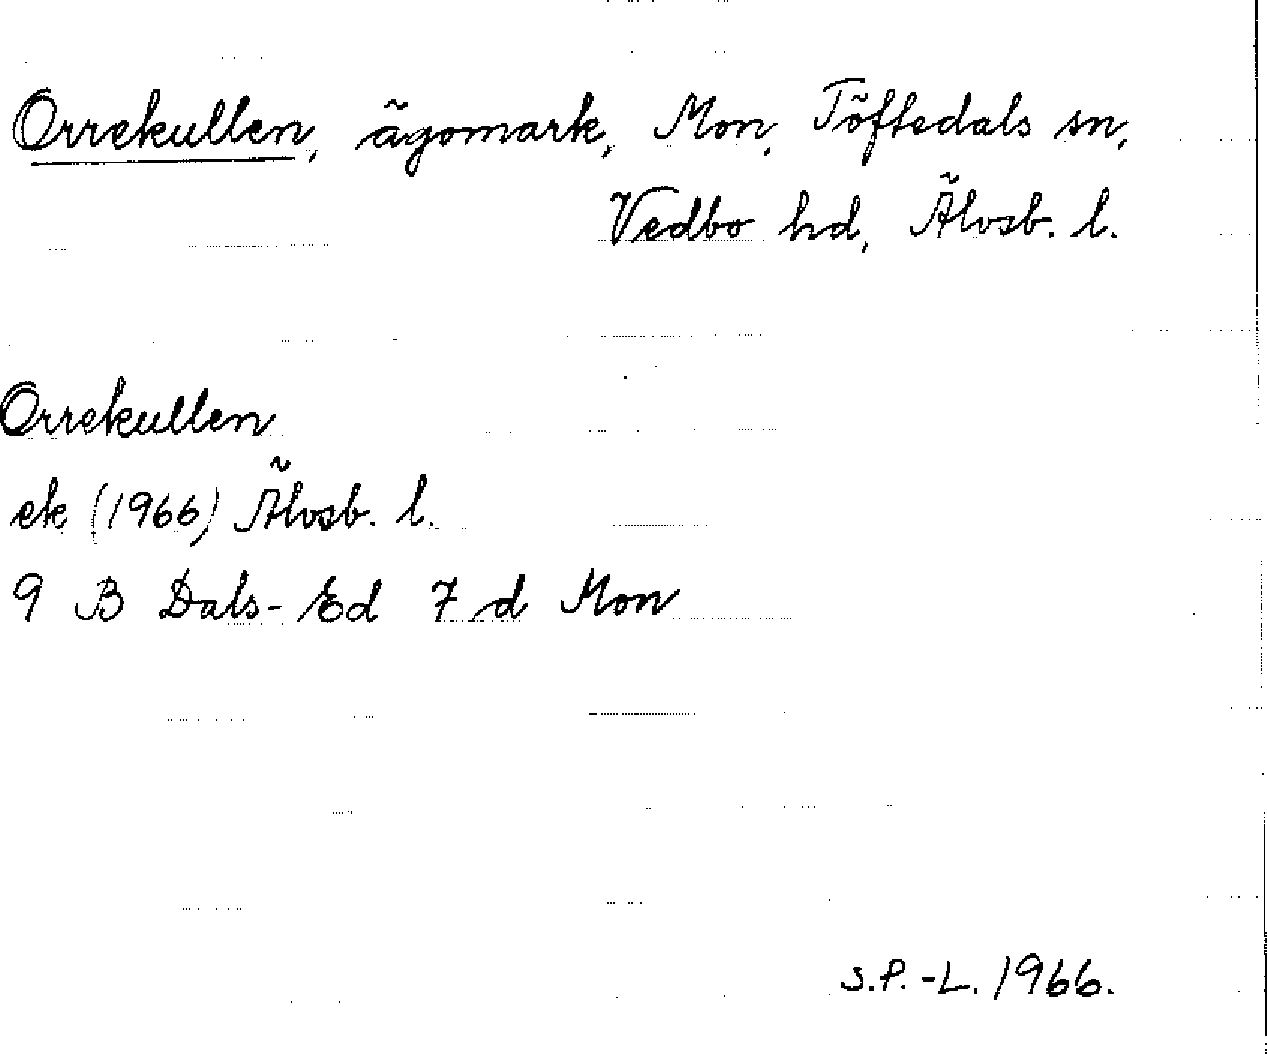 Orrekullen, ägomark, Mon, Töftedals sn,
Vedbo hd, Älvsb. l.
Orrekullen
ek (1966) Älvsb. l.
9 B Dals-Ed 7 d Mon
S.P.-L. 1966.